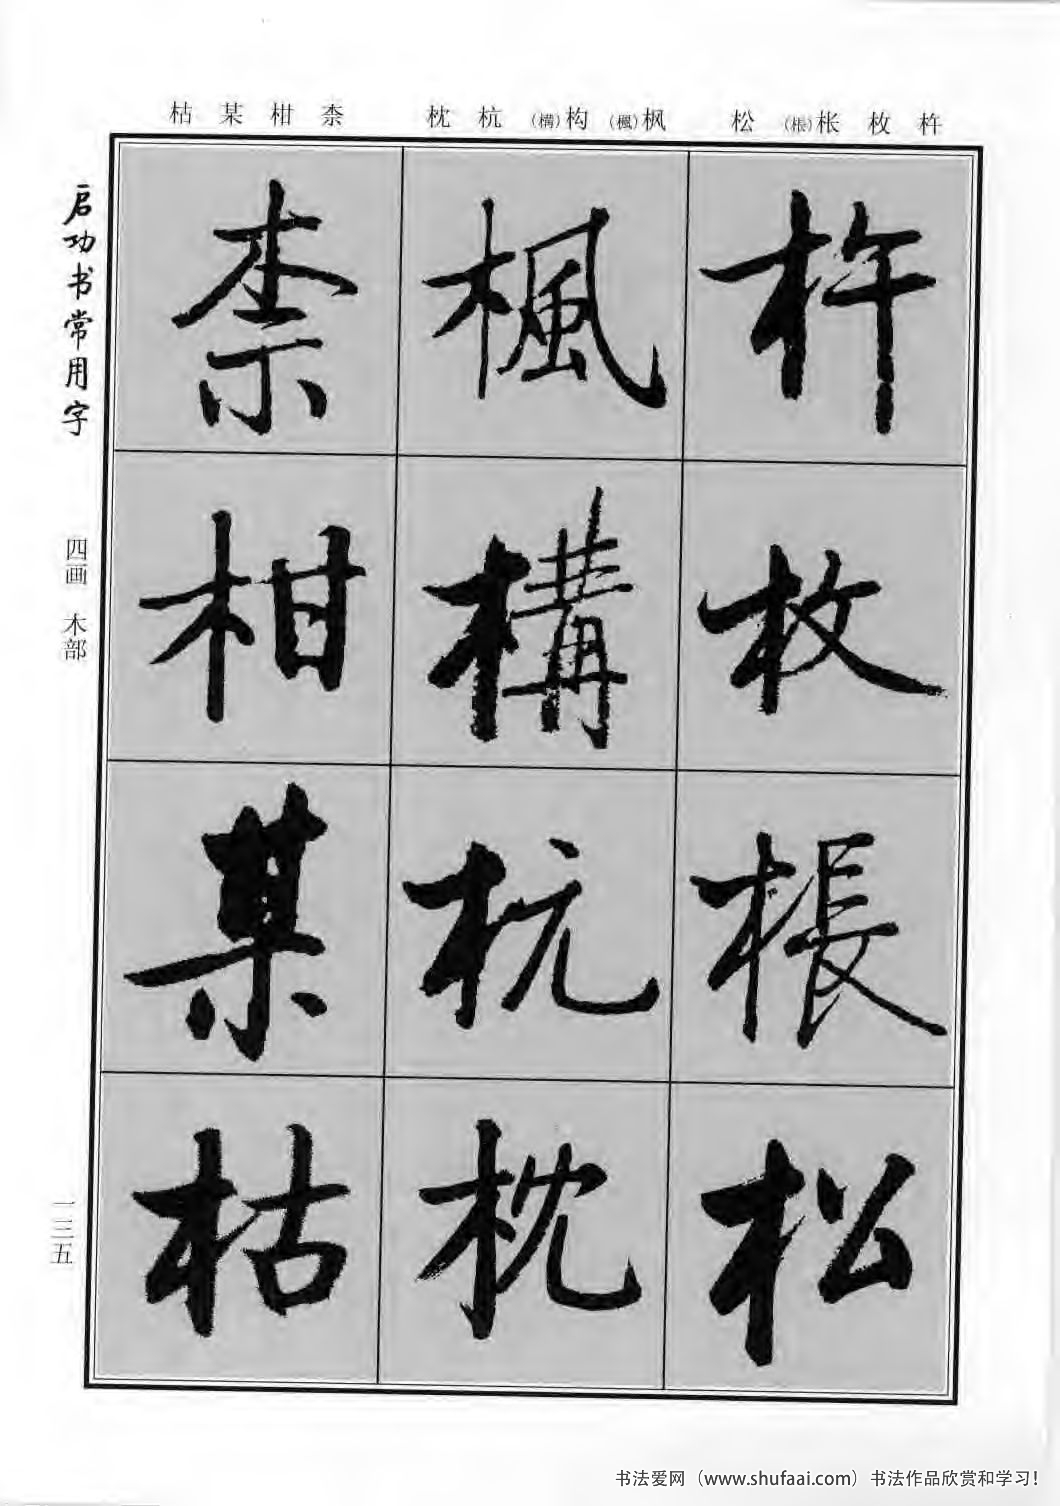 杵 枚 枨(棖) 松
枫(楓) 构(構) 杭 枕
柰 柑 某 枯
杵
枚
棖
松
楓
構
杭
枕
柰
柑
某
枯
启功书常用字
四画 木部
一三五
书法爱网（www.shufaai.com）书法作品欣赏和学习！